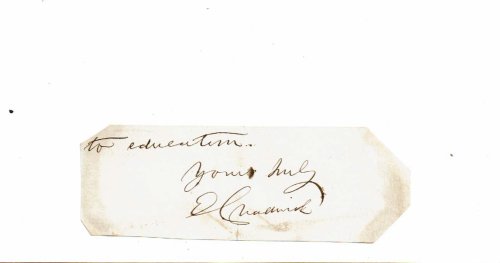 to education.
Yours truly
E Chadwick